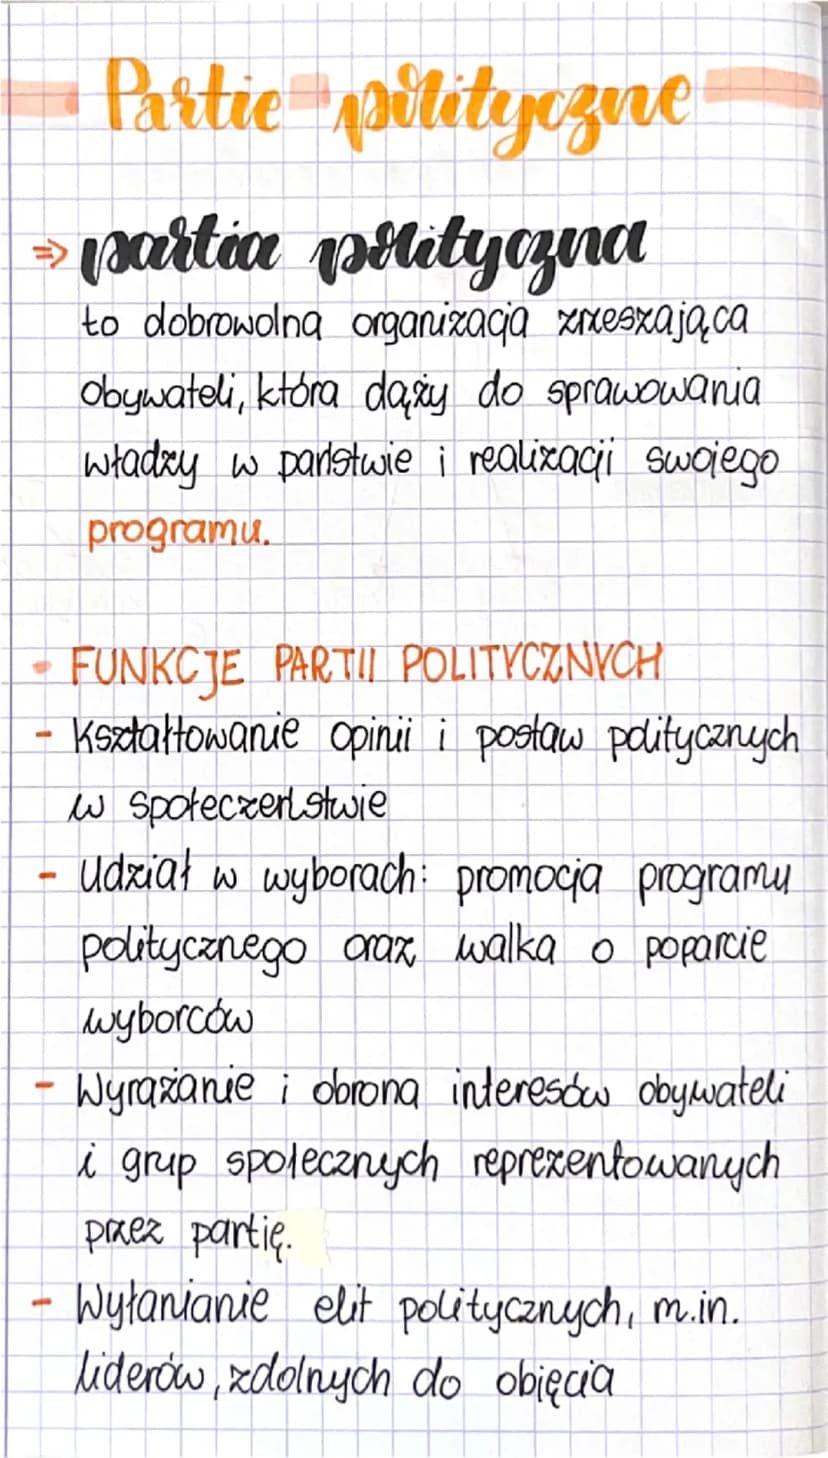 Partie polityczne
⇒ partia polityczna
to dobrowolna organizacja zrzeszająca
obywateli, która dąży do sprawowania
władzy w państwie i realizacji swojego
programu.
• FUNKCJE PARTII POLITYCZNYCH
- Kształtowanie opinii i postaw politycznych
w społeczeństwie
- Udział w wyborach: promocja programu
politycznego oraz walka o poparcie
wyborców
- Wyrażanie i obrona interesów obywateli
i grup społecznych reprezentowanych
przez partię.
- Wyłanianie elit politycznych, m.in.
liderów, zdolnych do objęcia